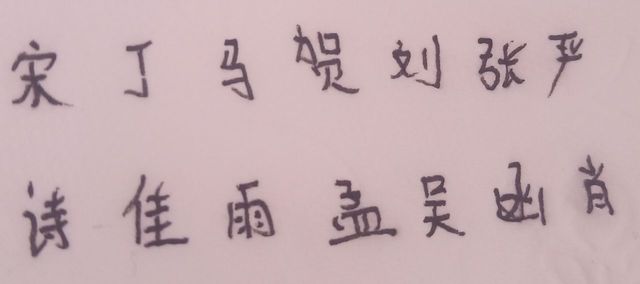 宋 丁 马 贺 刘 张 严
诗 佳 雨 孟 吴 函 肖